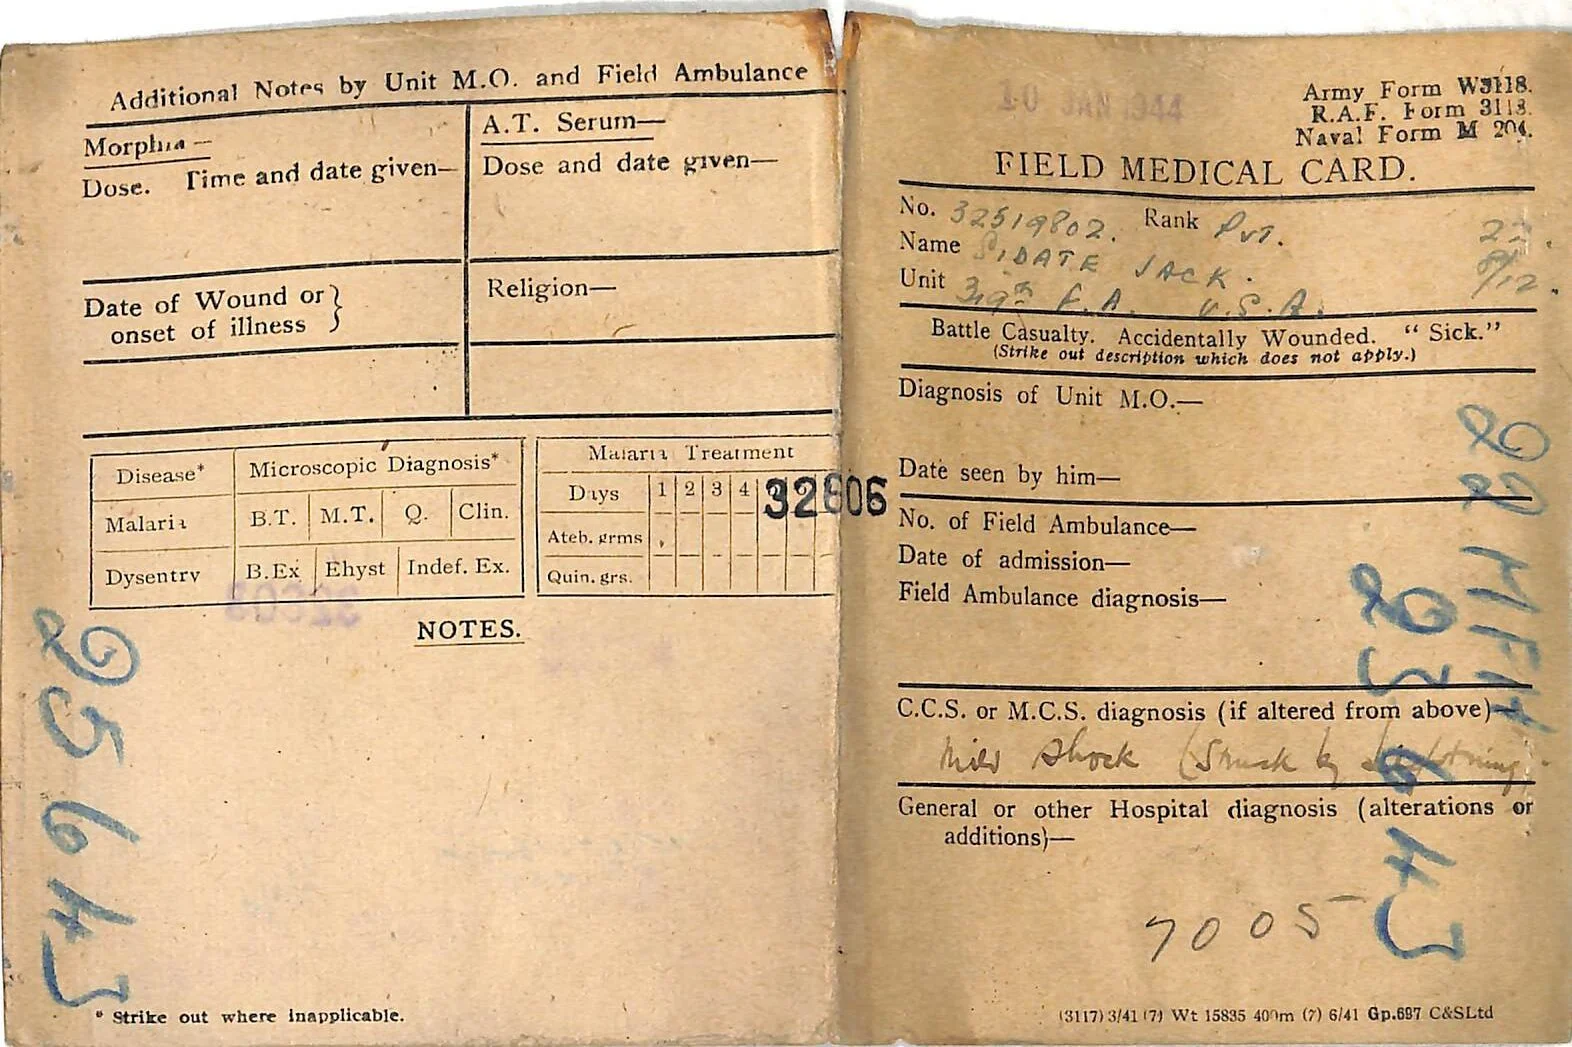 Additional Notes by Unit M.O. and Field Ambulance
Morphia—
Dose. Time and date given—
A.T. Serum—
Dose and date given—
Date of Wound or
onset of illness }
Religion—
Disease* Microscopic Diagnosis*
Malaria B.T. M.T. Q. Clin.
Dysentry B.Ex Ehyst Indef. Ex.
Malaria Treatment
Days 1 2 3 4
Ateb. grms
Quin. grs.
32606
NOTES.
25643
* Strike out where inapplicable.
10 JAN 1944
Army Form W3118.
R.A.F. Form 3118.
Naval Form M 204.
FIELD MEDICAL CARD.
No. 32519802. Rank Pvt.
Name JACK.
Unit 319th F.A. U.S.A.
Battle Casualty. Accidentally Wounded. "Sick."
(Strike out description which does not apply.)
Diagnosis of Unit M.O.—
Date seen by him—
No. of Field Ambulance—
Date of admission—
Field Ambulance diagnosis—
C.C.S. or M.C.S. diagnosis (if altered from above)—
Mild shock (Struck by lightning)
General or other Hospital diagnosis (alterations or
additions)—
7005
22 MFH
25643
(3117) 3/41 (7) Wt 15835 400m (7) 6/41 Gp.697 C&SLtd